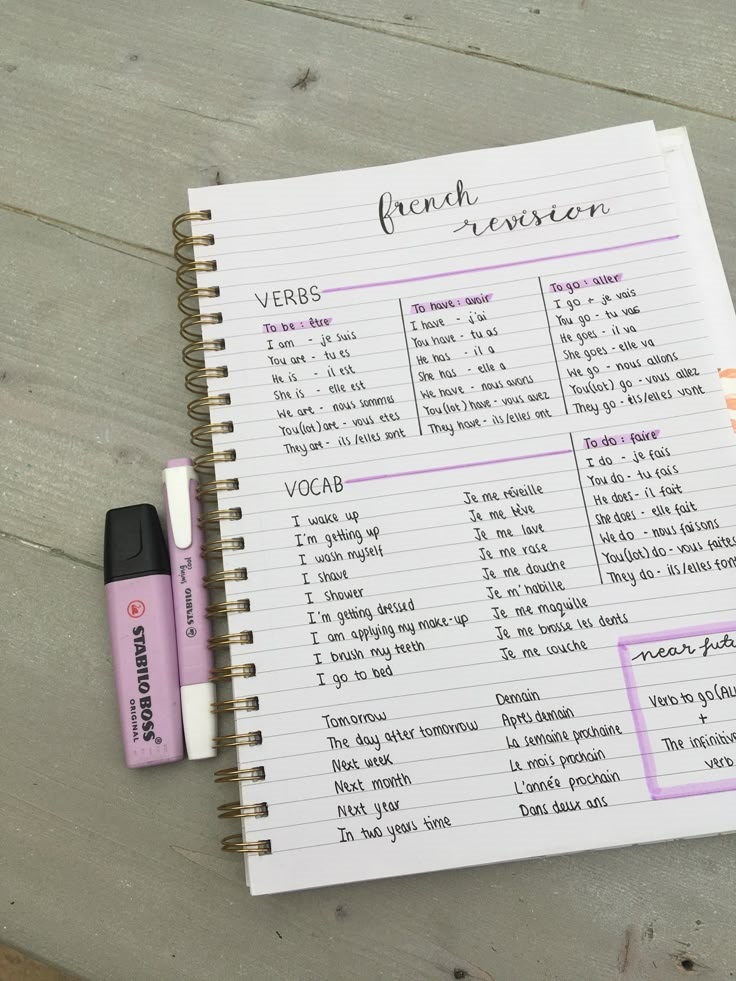 french
revision
VERBS
To be : être
I am - je suis
You are - tu es
He is - il est
She is - elle est
We are - nous sommes
You(lot) are - vous etes
They are - ils/elles sont
To have : avoir
I have - j'ai
You have - tu as
He has - il a
She has - elle a
We have - nous avons
You(lot) have - vous avez
They have - ils/elles ont
To go : aller
I go + je vais
You go - tu vas
He goes - il va
She goes - elle va
We go - nous allons
You(lot) go - vous allez
They go - ils/elles vont
To do : faire
I do - je fais
You do - tu fais
He does - il fait
She does - elle fait
We do - nous faisons
You(lot) do - vous faites
They do - ils/elles font
VOCAB
I wake up Je me réveille
I'm getting up Je me lève
I wash myself Je me lave
I shave Je me rase
I shower Je me douche
I'm getting dressed Je m'habille
I am applying my make-up Je me maquille
I brush my teeth Je me brosse les dents
I go to bed Je me couche
Tomorrow Demain
The day after tomorrow Après demain
Next week La semaine prochaine
Next month Le mois prochain
Next year L'année prochain
In two years time Dans deux ans
near futu
Verb to go (AL
+
The infinitive
verb
STABILO BOSS
ORIGINAL
STABILO
swing
cool